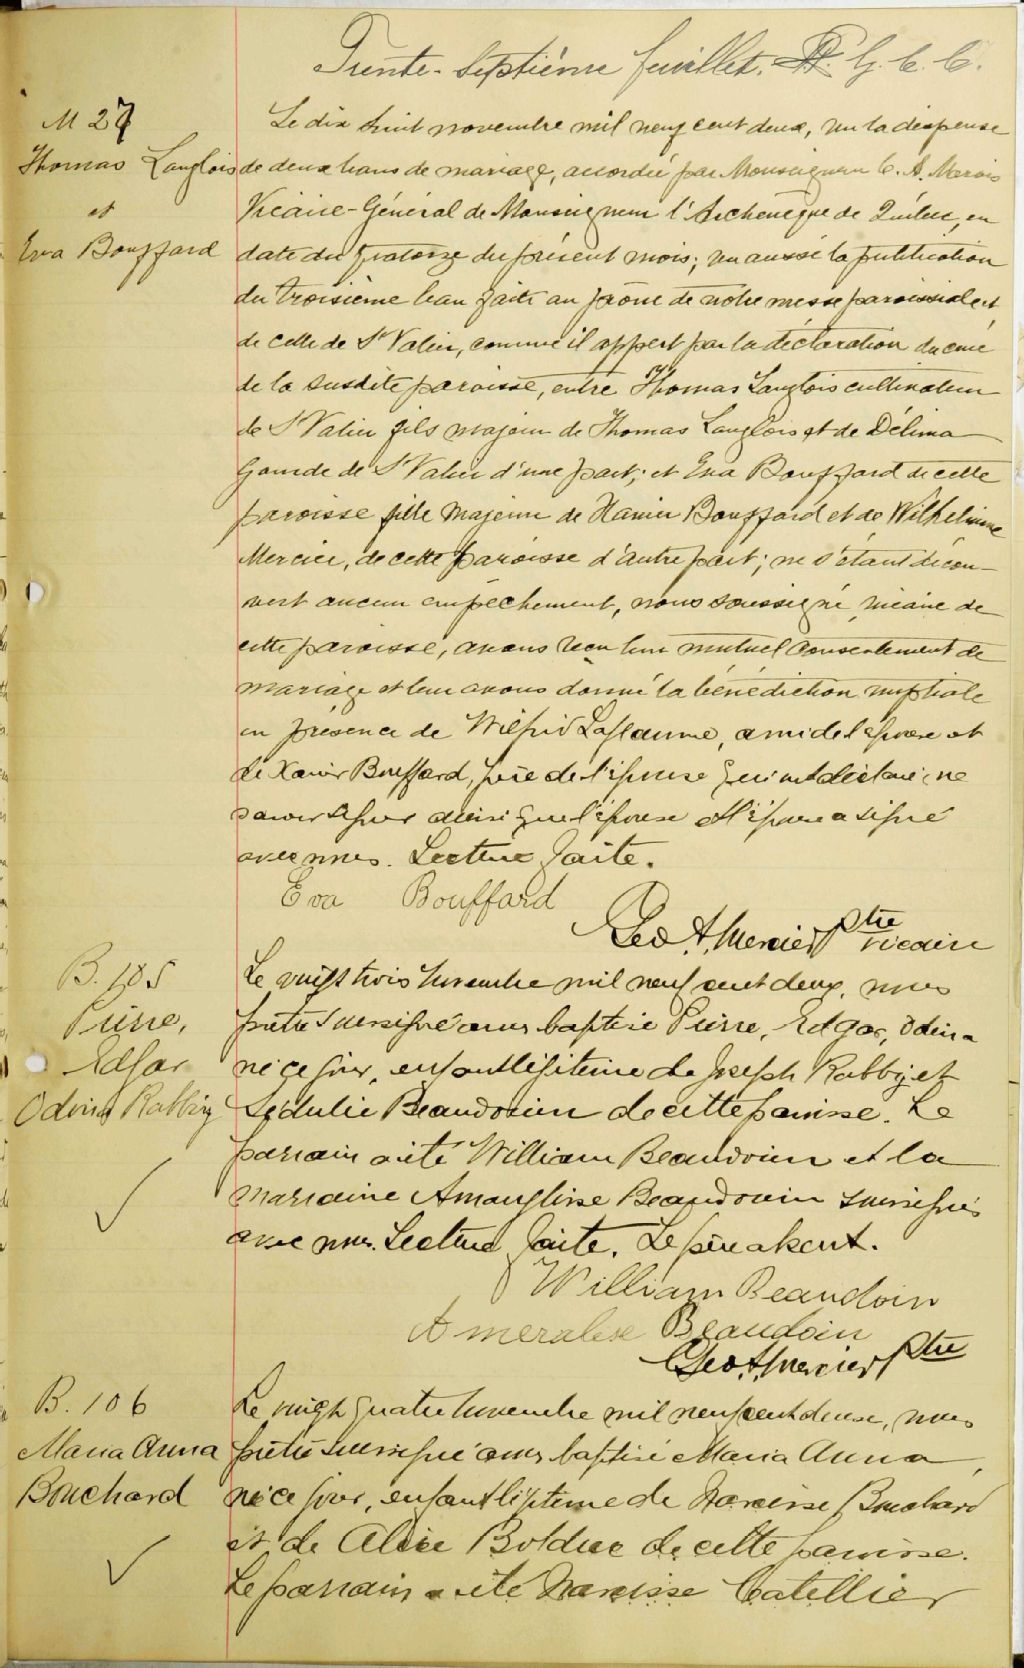 Trente-Septième feuillet. G. C. C.
M 27
Thomas Langlois
et
Eva Bouffard
Le dix huit novembre mil neuf cent deux, vu la dispense
de deux bans de mariage, accordée par Monseigneur C. A. Marois
Vicaire-Général de Monseigneur l'Archevêque de Québec, en
date du quatorze du présent mois; vu aussi la publication
du troisième ban faite au prône de notre messe paroissiale et
de celle de St Valier, comme il appert par la déclaration du curé
de la susdite paroisse, entre Thomas Langlois cultivateur
de St Valier fils majeur de Thomas Langlois et de Délima
de St Valier d'une part; et Eva Bouffard de cette
paroisse fille majeure de Xavier Bouffard et de Wilhelmine
Mercier, de cette paroisse d'autre part; ne s'étant décou-
vert aucun empêchement, nous soussigné, vicaire de
cette paroisse, avons reçu leur mutuel consentement de
mariage et leur avons donné la bénédiction nuptiale
en présence de Wilfrid Laflamme, ami de l'époux et
de Xavier Bouffard, père de l'épouse qui ont déclaré ne
savoir signer ainsi que l'époux et l'épouse a signé
avec nous. Lecture faite.
Eva Bouffard
Geo A. Mercier Ptre
vicaire
B. 105
Pierre,
Edgar
Odvina Rabby
Le vingt trois novembre mil neuf cent deux, nous
prêtre soussigné avons baptisé Pierre, Edgar,
né ce jour, enfant légitime de Joseph Rabby et
Sédulie Beaudouin de cette paroisse. Le
parrain a été William Beaudoin et la
marraine Amanglise Beaudouin soussignés
avec nous. Lecture faite. Le père absent.
William Beaudoin
Ameralise Beaudoin
Geo. A. Mercier Ptre
B. 106
Maria Anna
Bouchard
Le vingt quatre novembre mil neuf cent deux, nous
prêtre soussigné avons baptisé Maria Anna,
née ce jour, enfant légitime de Narcisse Bouchard
et de Alice Bolduc de cette paroisse.
Le parrain a été Narcisse Catellier